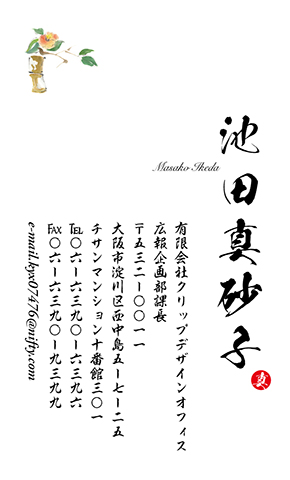 池田真砂子
真
Masako Ikeda
有限会社クリップデザインオフィス
広報企画部課長
〒五三二ー〇〇一一
大阪市淀川区西中島五ー七ー二五
チサンマンション十番館三〇一
TEL〇六ー六三九〇ー六三九六
FAX〇六ー六三九〇ー九三九九
e-mail.kyx07476@nifty.com